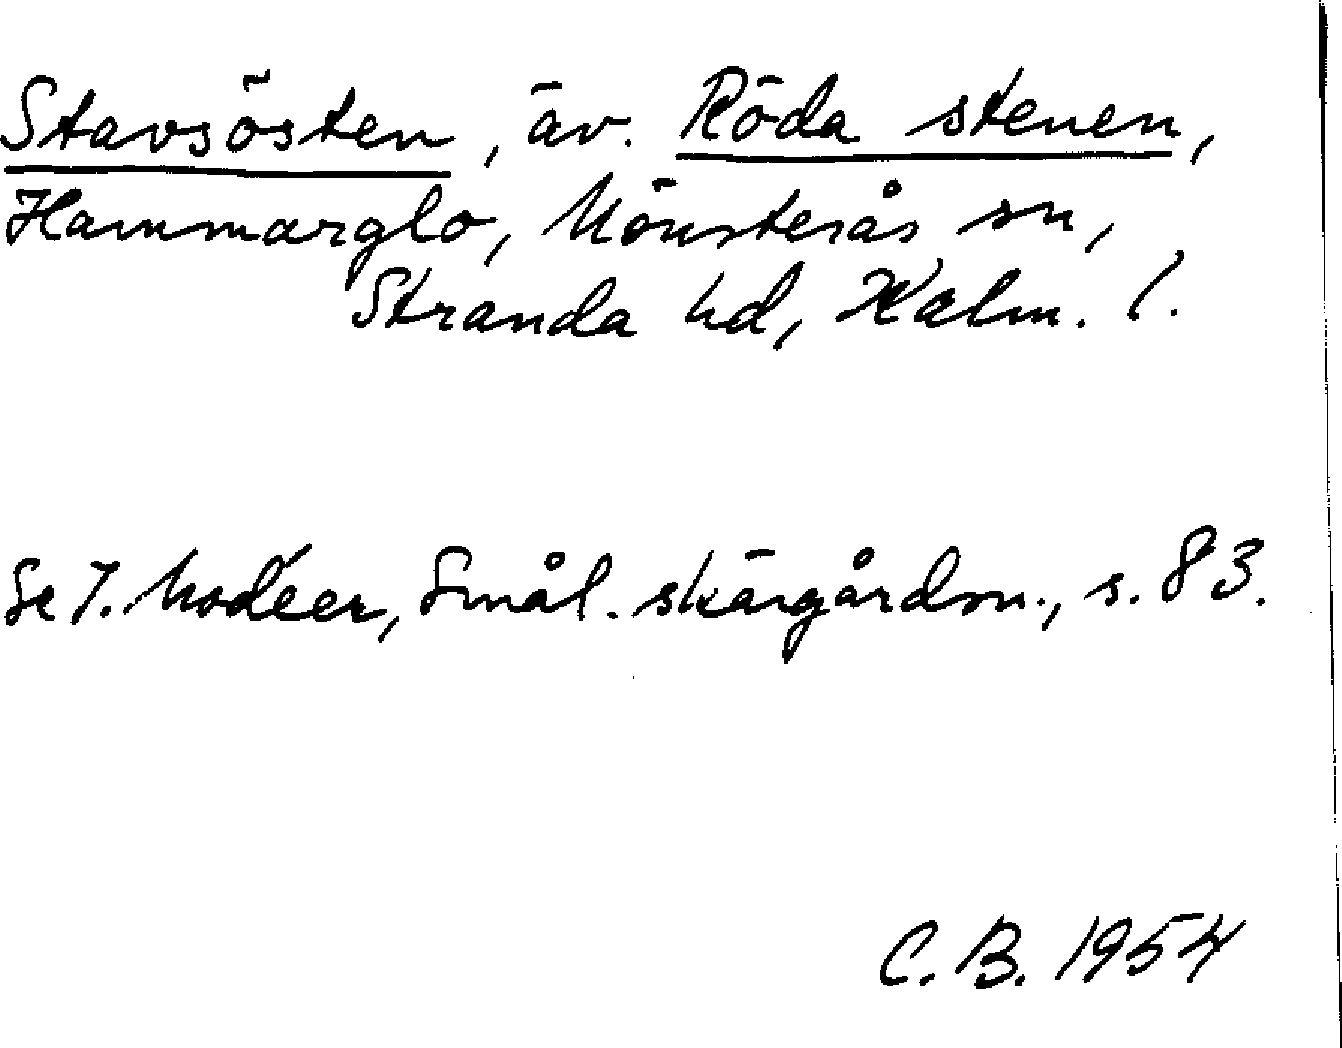 Stavsösten, äv. Röda stenen,
Hammarglo, Mönsterås sn,
Stranda hd, Kalm. l.
Se I. Modéer, Smål. skärgårdsn., s. 83.
C. B. 1954